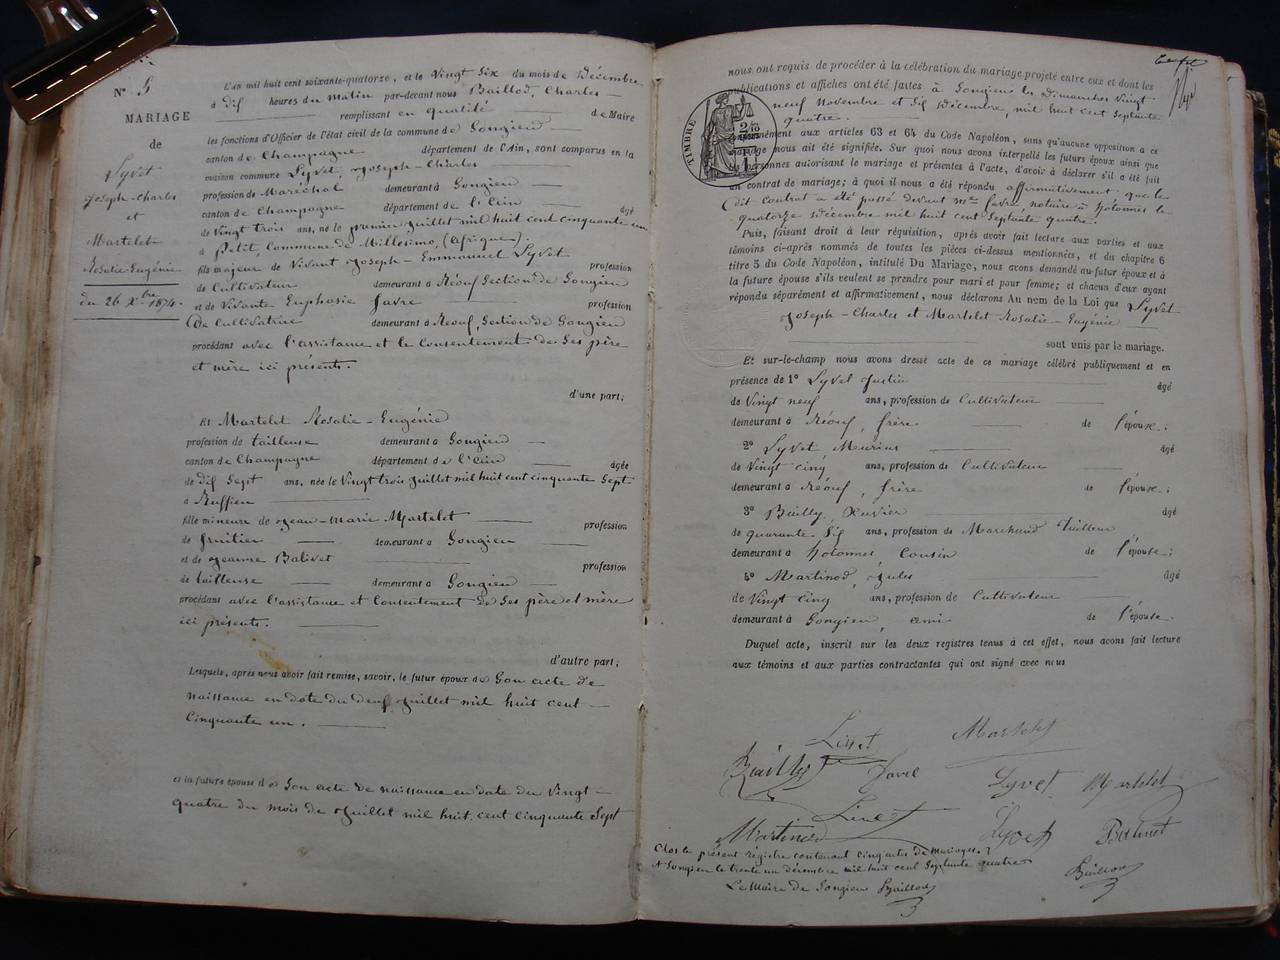 N° 5
MARIAGE
de
Lyvet
Joseph-Charles
et
Martelet
Rosalie Eugénie
du 26 Xbre 1874.
L'an mil huit cent soixante-quatorze, et le Vingt Six du mois de Décembre
à dix heures du Matin par-devant nous Baillod, Charles —
remplissant en qualité de Maire
les fonctions d'Officier de l'état civil de la commune de Songieu
canton de Champagne département de l'Ain, sont comparus en la
maison commune Lyvet, Joseph-Charles
profession de Maréchal demeurant à Songieu
canton de Champagne département de l'Ain âgé
de Vingt trois ans, né le premier Juillet mil huit cent cinquante un
à Petit Commune de Millesimo, (Afrique).
fils majeur de Vivant Joseph-Emmanuel Lyvet profession
de Cultivateur demeurant à Réouf Section de Songieu
et de Vivante Euphasie Favre profession
de Cultivatrice demeurant à Réouf, Section de Songieu
procédant avec l'assistance et le consentement de Ses père
et mère ici présents.
d'une part;
Et Martelet Rosalie-Eugénie
profession de tailleuse demeurant à Songieu
canton de Champagne département de l'Ain âgée
de dix Sept ans, née le Vingt trois Juillet mil huit cent cinquante Sept
à Ruffieu
fille mineure de Jean-Marie Martelet profession
de fruitier demeurant à Songieu
et de Jeanne Balivet profession
de tailleuse demeurant à Songieu
procédant avec l'assistance et Consentement de Ses père et mère
ici présents.
d'autre part;
Lesquels, après nous avoir fait remise, savoir, le futur époux de Son acte de
naissance en date du deux Juillet mil huit cent
Cinquante un.
et la future épouse de Son acte de naissance en date du Vingt-
quatre du mois de Juillet mil huit cent cinquante Sept
nous ont requis de procéder à la célébration du mariage projeté entre eux et dont les
publications et affiches ont été faites à Songieu les dimanches Vingt
neuf Novembre et Six Décembre, mil huit cent Septante
quatre.
TIMBRE
conformément aux articles 63 et 64 du Code Napoléon, sans qu'aucune opposition à ce
mariage nous ait été signifiée. Sur quoi nous avons interpellé les futurs époux ainsi que
les personnes autorisant le mariage et présentes à l'acte, d'avoir à déclarer s'il a été fait
un contrat de mariage; à quoi il nous a été répondu affirmativement que le
dit Contrat a été passé devant me favre notaire à hotonnes le
quatorze Décembre mil huit Cent Septante quatre.
Puis, faisant droit à leur réquisition, après avoir fait lecture aux parties et aux
témoins ci-après nommés de toutes les pièces ci-dessus mentionnées, et du chapitre 6
titre 5 du Code Napoléon, intitulé Du Mariage, nous avons demandé au futur époux et à
la future épouse s'ils veulent se prendre pour mari et pour femme; et chacun d'eux ayant
répondu séparément et affirmativement, nous déclarons Au nom de la Loi que Lyvet
Joseph-Charles et Martelet Rosalie-Eugénie
sont unis par le mariage.
Et sur-le-champ nous avons dressé acte de ce mariage célébré publiquement et en
présence de 1° Lyvet Justin âgé
de Vingt neuf ans, profession de Cultivateur
demeurant à Réouf, frère de l'épouse;
2° Lyvet Marius âgé
de Vingt cinq ans, profession de Cultivateur
demeurant à Réouf, frère de l'épouse;
3° Bailly, Xavier âgé
de quarante Six ans, profession de Marchand tailleur
demeurant à hotonnes Cousin de l'épouse;
4° Martinod, Jules âgé
de Vingt cinq ans, profession de Cultivateur
demeurant à Songieu, ami de l'épouse.
Duquel acte, inscrit sur les deux registres tenus à cet effet, nous avons fait lecture
aux témoins et aux parties contractantes qui ont signé avec nous
Livet Martelet
Bailly Favre Lyvet Martelet
Livet
Martinod Lyvet Balivet
Clos le présent régistre contenant cinq actes de mariages.
A Songieu le trente un décembre mil huit cent Septante quatre
Le Maire de Songieu Baillod Baillod